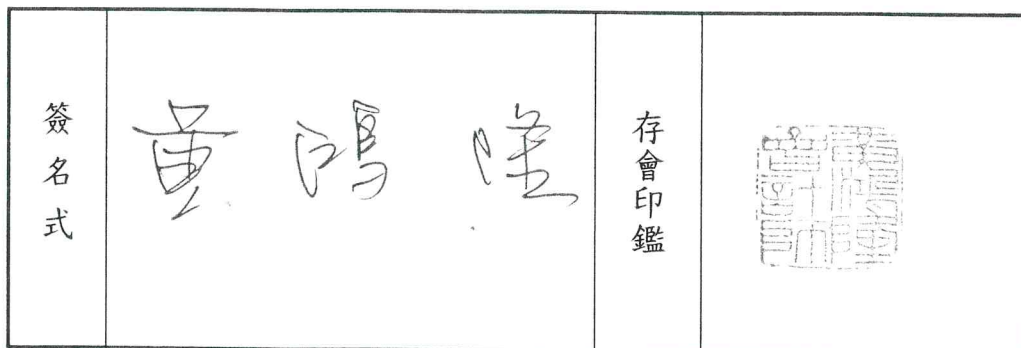 簽名式
黃鴻隆
存會印鑑